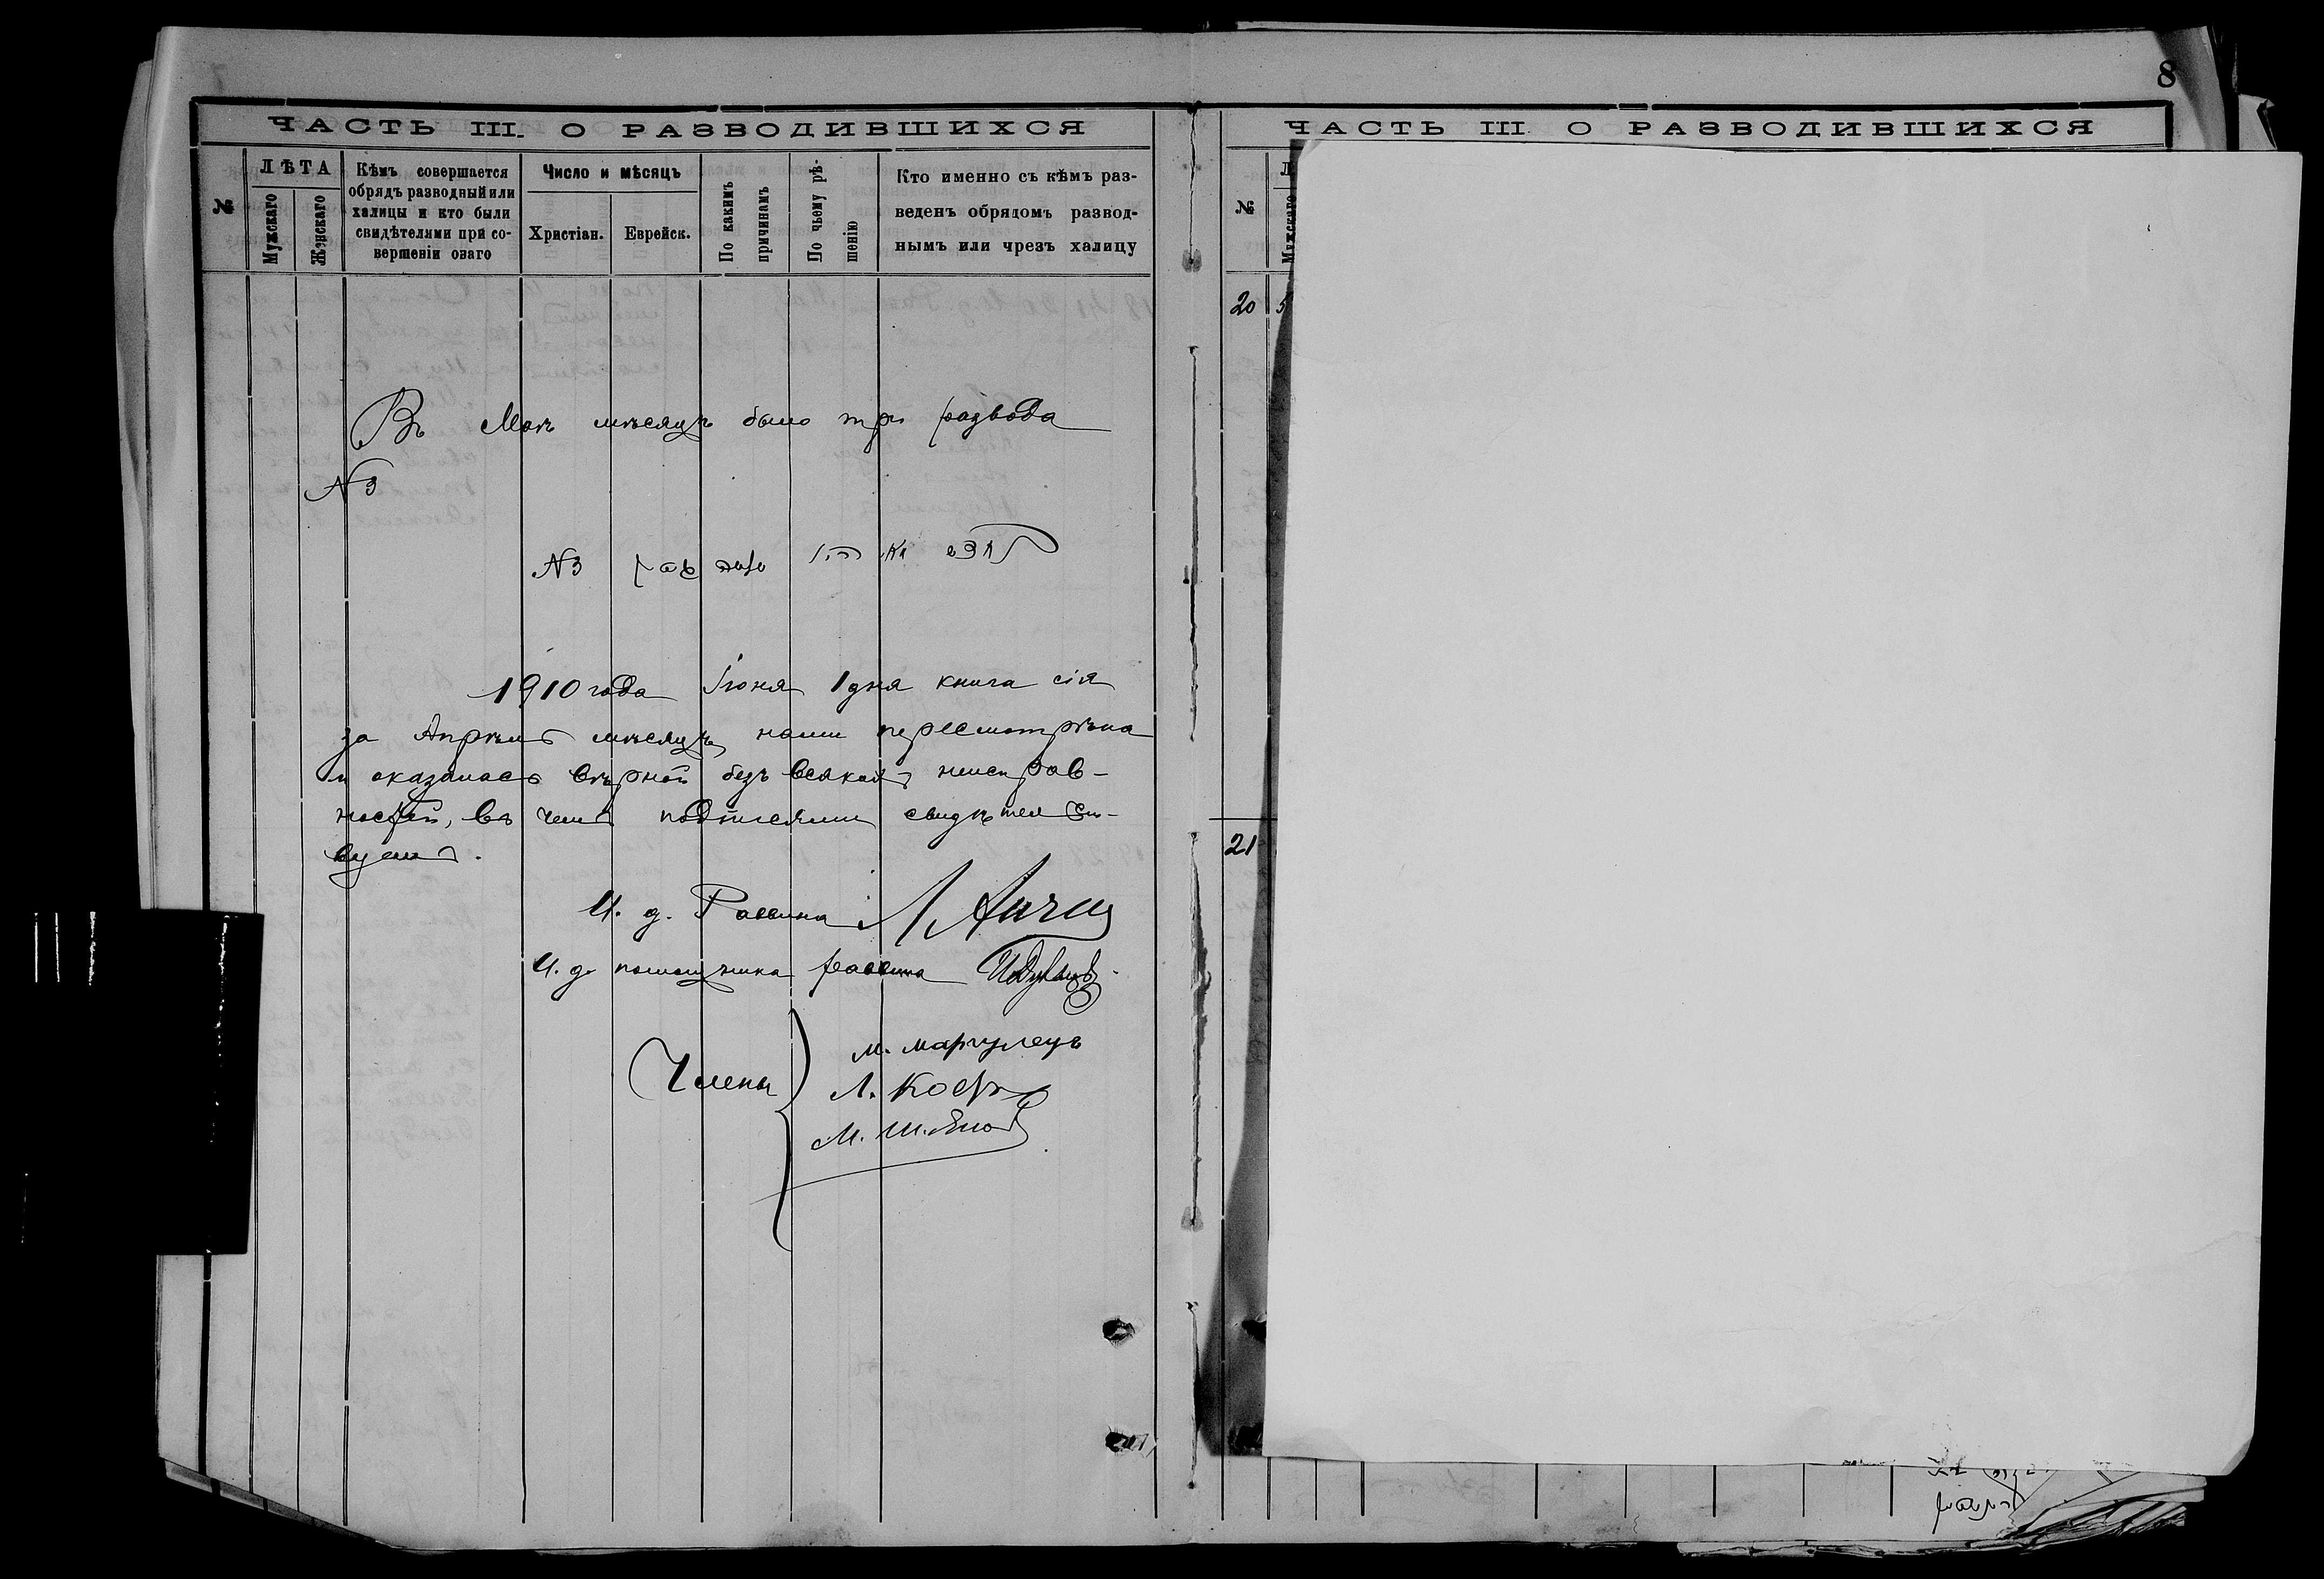 8
ЧАСТЬ III. О РАЗВОДИВШИХСЯ
№
ЛѢТА
Мужскаго
Женскаго
Кѣмъ совершается
обрядъ разводный или
халицы и кто были
свидѣтелями при со-
вершеніи онаго
Число и мѣсяцъ
Христіан.
Еврейск.
По какимъ
причинамъ
По чьему рѣ-
шенію
Кто именно съ кѣмъ раз-
веденъ обрядомъ развод-
нымъ или чрезъ халицу
Въ Маѣ мѣсяцѣ было три развода
N 3
N 3
1910 года Іюня 1 дня книга сія
за Апрѣль мѣсяцъ нами пересмотрѣна
и оказалась вѣрной безъ всякихъ неисправ-
ностей, въ чемъ подписями свидѣтельст-
вуемъ.
И. д. Раввина
И. д. помощника раввина
Члены
М. Маргулецъ
Л.
М. Ш.
ЧАСТЬ III О РАЗВОДИВШИХСЯ
№
Мужскаго
20 5
21